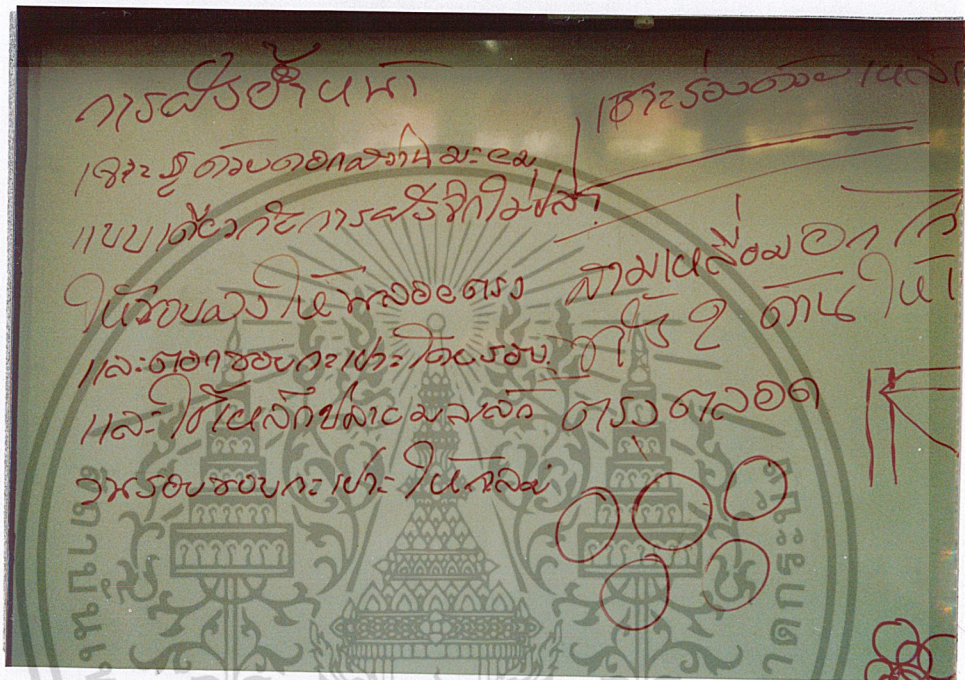 การฝังย้ำหน้า
เจาะรูด้วยดอกสว่านมะยม
แบบเดียวกับการฝังจิกไข่ปลา
ให้ขอบลงให้พลอยตรง
และตอกขอบกะเปาะโดยรอบ
และใช้เหล็กปลายมน
วนรอบขอบกะเปาะให้กลม
เซาะร่องด้วยเหล็ก
สามเหลี่ยมอีก
ทั้ง 2 ด้านให้
ตรงตลอด